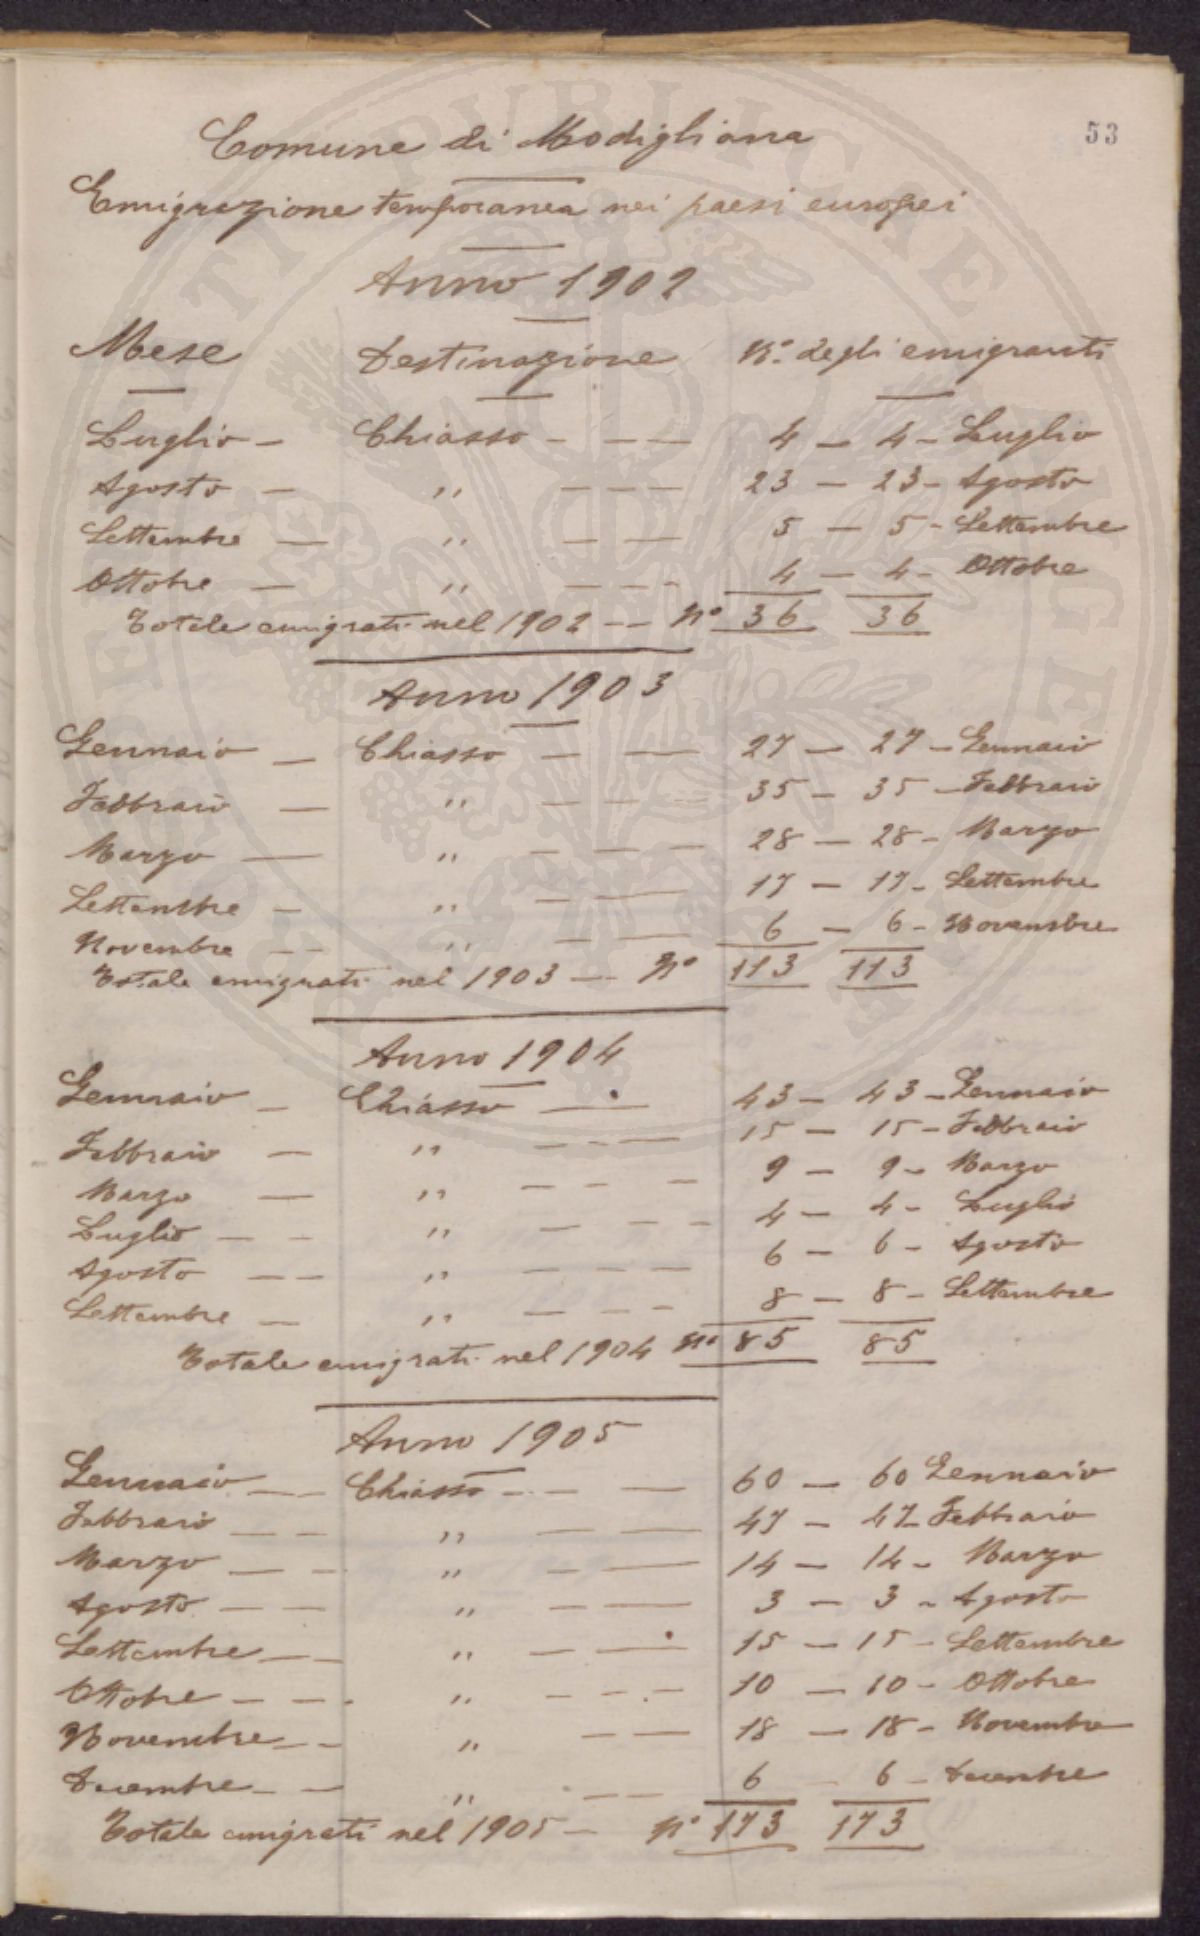 53
Comune di Modigliana
Emigrazione temporanea nei paesi europei
Anno 1902
Mese Destinazione N.° degli emigranti
Luglio — Chiasso - — — — 4 — 4 - Luglio
Agosto — " — — — 23 — 23 - Agosto
Settembre — " — — 5 — 5 - Settembre
Ottobre — " — — — - 4 — 4 - Ottobre
Totale emigrati nel 1902 — — N° 36 36
Anno 1903
Gennaio — Chiasso — — 27 — 27 - Gennaio
Febbraio — " — — — 35 — 35 - Febbraio
Marzo — " — — — — 28 — 28 - Marzo
Settembre — " — — — 17 — 17 - Settembre
Novembre — — " — — 6 — 6 - Novembre
Totale emigrati nel 1903 — - N° 113 113
Anno 1904
Gennaio — Chiasso — — 43 — 43 - Gennaio
Febbraio — " — - — 15 — 15 - Febbraio
Marzo — " — — — — 9 — 9 - Marzo
Luglio — — " — — — — 4 — 4 - Luglio
Agosto — — " — — — — 6 — 6 - Agosto
Settembre — " — — — — 8 — 8 - Settembre
Totale emigrati nel 1904 N° 85 85
Anno 1905
Gennaio — — Chiasso - — — 60 — 60 Gennaio
Febbraio — — " — — — 47 — 47 - Febbraio
Marzo — - " — — 14 — 14 - Marzo
Agosto — — " — — — 3 — 3 - Agosto
Settembre — — " — — 15 — 15 - Settembre
Ottobre — — " — — - — 10 — 10 - Ottobre
Novembre — — " — — 18 — 18 - Novembre
Decembre — — " — — 6 — 6 - Decembre
Totale emigrati nel 1905 — N° 173 173